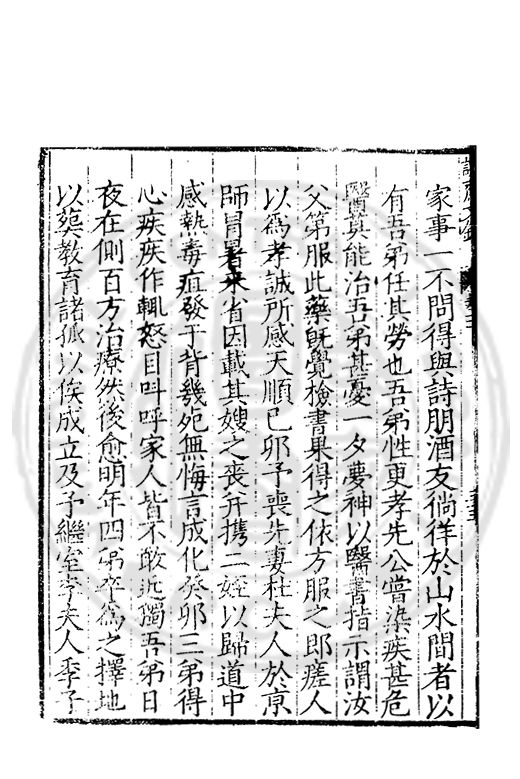 家事一不問得與詩朋酒友徜徉於山水間者以
有吾弟任其勞也吾弟性更孝先公嘗染疾甚危
醫莫能治吾弟甚憂一夕夢神以醫書指示謂汝
父第服此藥既覺檢書果得之依方服之即瘥人
以為孝誠所感天順己卯予喪先妻杜夫人於京
師冒暑來省因載其嫂之喪并携二姪以歸道中
感熱毒疽發于背幾死無悔言成化癸卯三弟得
心疾疾作輒怒目呌呼家人皆不敢近獨吾弟日
夜在側百方治療然後愈明年四弟卒為之擇地
以葬教育諸孤以俟成立及予繼室李夫人季子